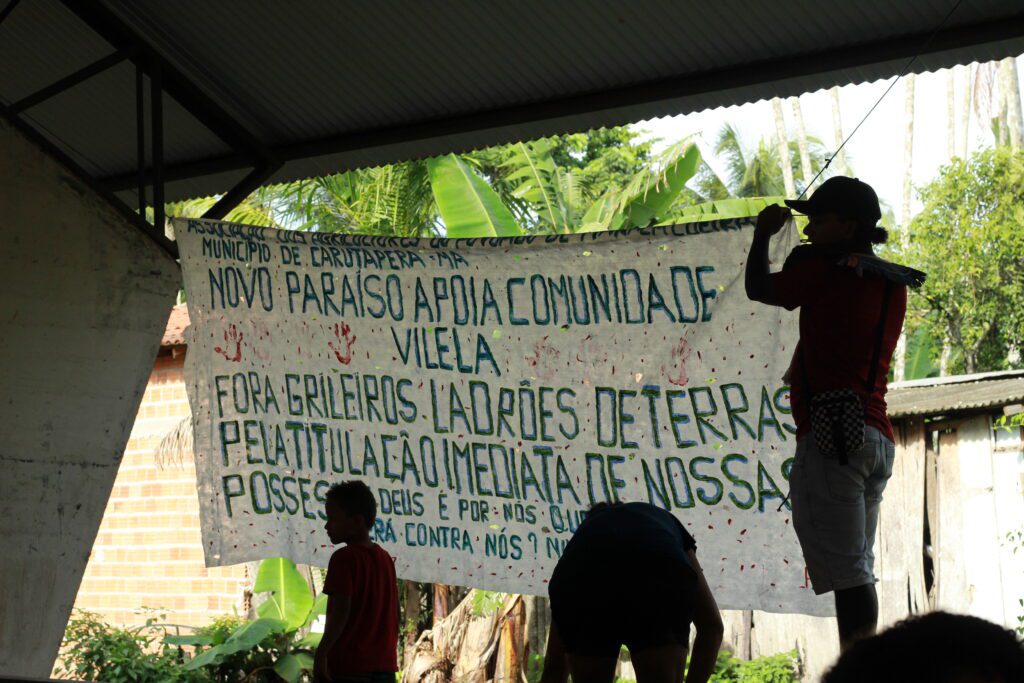 ASSOCIAÇÃO DOS AGRICULTORES DO
MUNICÍPIO DE CARUTAPERA - MA
NOVO PARAÍSO APOIA COMUNIDADE
VILELA
FORA GRILEIROS LADRÕES DE TERRAS
PELA TITULAÇÃO IMEDIATA DE NOSSAS
POSSES DEUS É POR NÓS
ERÁ CONTRA NÓS?